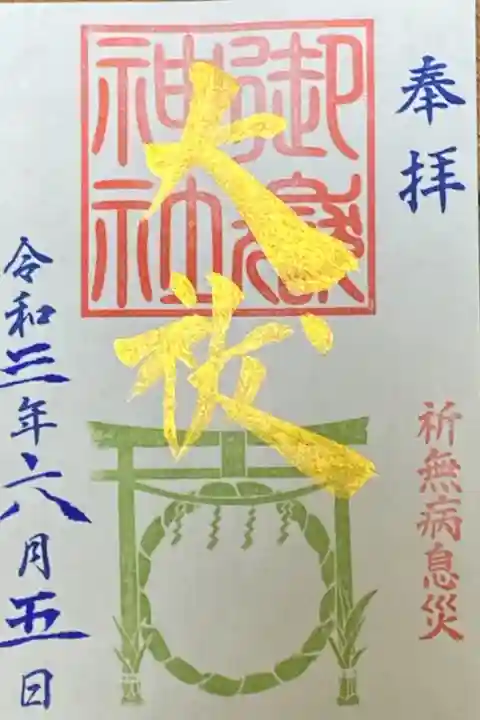 奉拝
祈無病息災
御嶽
神社
大祓
令和三年六月五日